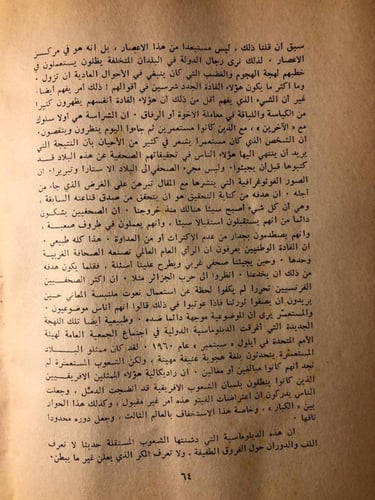 سبق ان قلنا ذلك ، ليس مستبعدا من هذا الاعصار ، بل انه هو في مركز
الاعصار . لذلك نرى رجال الدولة في البلدان المتخلفة يظلون يستعملون في
خطبهم لهجة الهجوم والغضب التي كان ينبغي في الأحوال العادية ان تزول .
وما اكثر ما يكون هؤلاء القادة الجدد شرسين في أقوالهم ! ذلك أمر يفهم أيضا .
غير أن الشيء الذي يفهم أقل من ذلك ان هؤلاء القادة أنفسهم يظهرون كثيرا
من الكياسة واللباقة في معاملة الاخوة أو الرفاق . ان الشراسة هي أولا سلوك
مع « الآخرين » ، مع الذين كانوا مستعمرين ثم جاءوا اليوم ينظرون ويتقصون .
ان الشخص الذي كان مستعمرا يشعر في كثير من الأحيان بأن النتيجة التي
يريد أن ينتهي اليها هؤلاء الناس في تحقيقاتهم الصحفية عن هذه البلاد قد
كتبوها قبل أن يجيئوا . وليس مجيء الصحفي الى البلاد الا ستارا وتبريرا . ان
الصور الفوتوغرافية التي ينشرها مع المقال تبرهن على الغرض الذي جاء من
أجله . ان هدفه من كتابة التحقيق هو ان يتحقق من صدق قناعته السابقة
وهي أن كل شيء أصبح سيئا هنالك منذ خروجنا . ان الصحفيين يشكون
دائما من انهم يستقبلون استقبالا سيئا ، وانهم يعملون في ظروف صعبة ،
وانهم يصطدمون بجدار من عدم الاكتراث أو من العداوة . هذا كله طبيعي .
ان القادة الوطنيين يعرفون ان الرأي العام العالمي تصنعه الصحافة الغربية
وحدها . وحين يجيئنا صحفي غربي ويطرح علينا أسئلة ، فقلما يكون هدفه
من ذلك أن يخدمنا . انظروا الى حرب الجزائر مثلا . ان أكثر الصحفيين
الفرنسيين تحررا لم يكفوا لحظة عن استعمال نعوت ملتبسة المعاني حين
يريدون ان يصفوا ثورتنا فاذا عوتبوا في ذلك قالوا انهم أناس موضوعيون .
والمستعمَر يرى ان الموضوعية موجهة دائما ضده . وطبيعية أيضا تلك اللهجة
الجديدة التي أغرقت الدبلوماسية الدولية في اجتماع الجمعية العامة لهيئة
الأمم المتحدة في أيلول « سبتمبر » عام ١٩٦٠ . لقد كان ممثلو البلاد
المستعمَرة يتحدثون بلغة هجومية عنيفة مهينة ، ولكن الشعوب المستعمرة لم
تجد انهم كانوا مبالغين أو مغالين . ان راديكالية هؤلاء الممثلين الافريقيين
الذين كانوا ينطقون بلسان الشعوب الافريقية قد أنضجت الدمل ، وجعلت
الناس يدركون ان اعتراضات الفيتو هذه أمر غير مقبول ، وكذلك هذا الحوار
بين « الكبار » ، وخاصة هذا الاستخفاف بالعالم الثالث ، وجعل دوره محدودا
تافها .
ان هذه الدبلوماسية التي دشنتها الشعوب المستقلة حديثا لا تعرف
اللف والدوران حول الفروق الطفيفة ، ولا تعرف المكر الذي يعلن غير ما يبطن .
٦٤